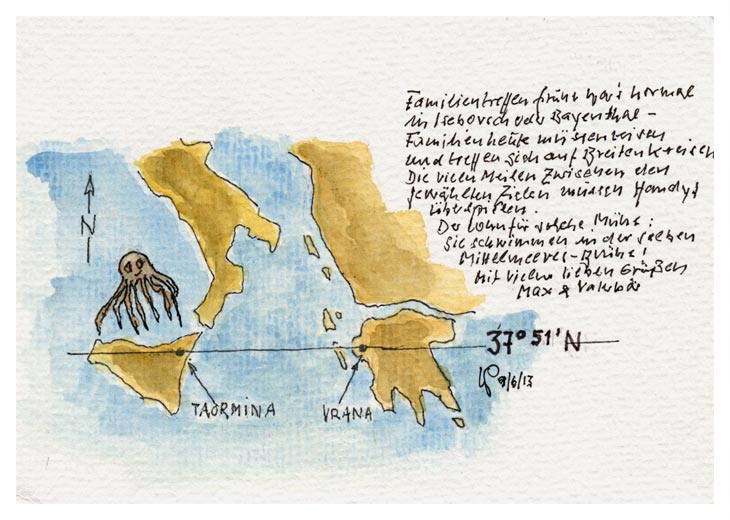 Familientreffen früher war's normal
in Iseborsch oder Bayenthal –
Familien heute müssen reisen
und treffen sich auf Breitenkreisen
Die vielen Meilen zwischen den
gewählten Zielen müssen Handys
überspielen.
Der Lohn für solche Mühe:
Sie schwimmen in der selben
Mittelmeeres-Brühe!
Mit vielen lieben Grüßen
Max &
N
37° 51' N
9/6/13
TAORMINA
VRANA